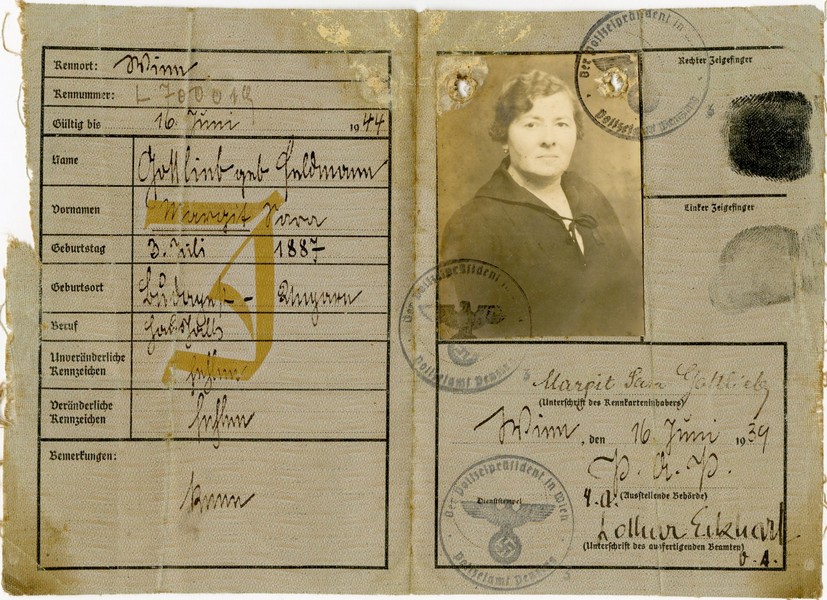 Kennort: Wien
Kennnummer: L 700019
Gültig bis 16. Juni 1944
Name Gottlieb geb Feldmann
Vornamen Margit Sara
Geburtstag 3. Juli 1887
Geburtsort Budapest - Ungarn
Beruf
Unveränderliche Kennzeichen fehlen
Veränderliche Kennzeichen fehlen
Bemerkungen: Keine
J
Der Polizeipräsident in
Rechter Zeigefinger
Linker Zeigefinger
Der Polizeipräsident
Polizeiamt
Margit Sara Gottlieb
(Unterschrift des Kennkarteninhabers)
Wien, den 16. Juni 1939
P. A. P.
(Ausstellende Behörde)
Dienststempel
Der Polizeipräsident in Wien
Polizeiamt
Lothar Eckhart
(Unterschrift des ausfertigenden Beamten)